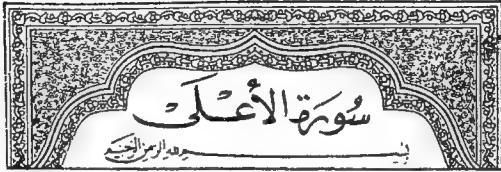 سُورَة الأَعْلَى
بِسْمِ اللهِ الرَّحْمٰنِ الرَّحِيمِ